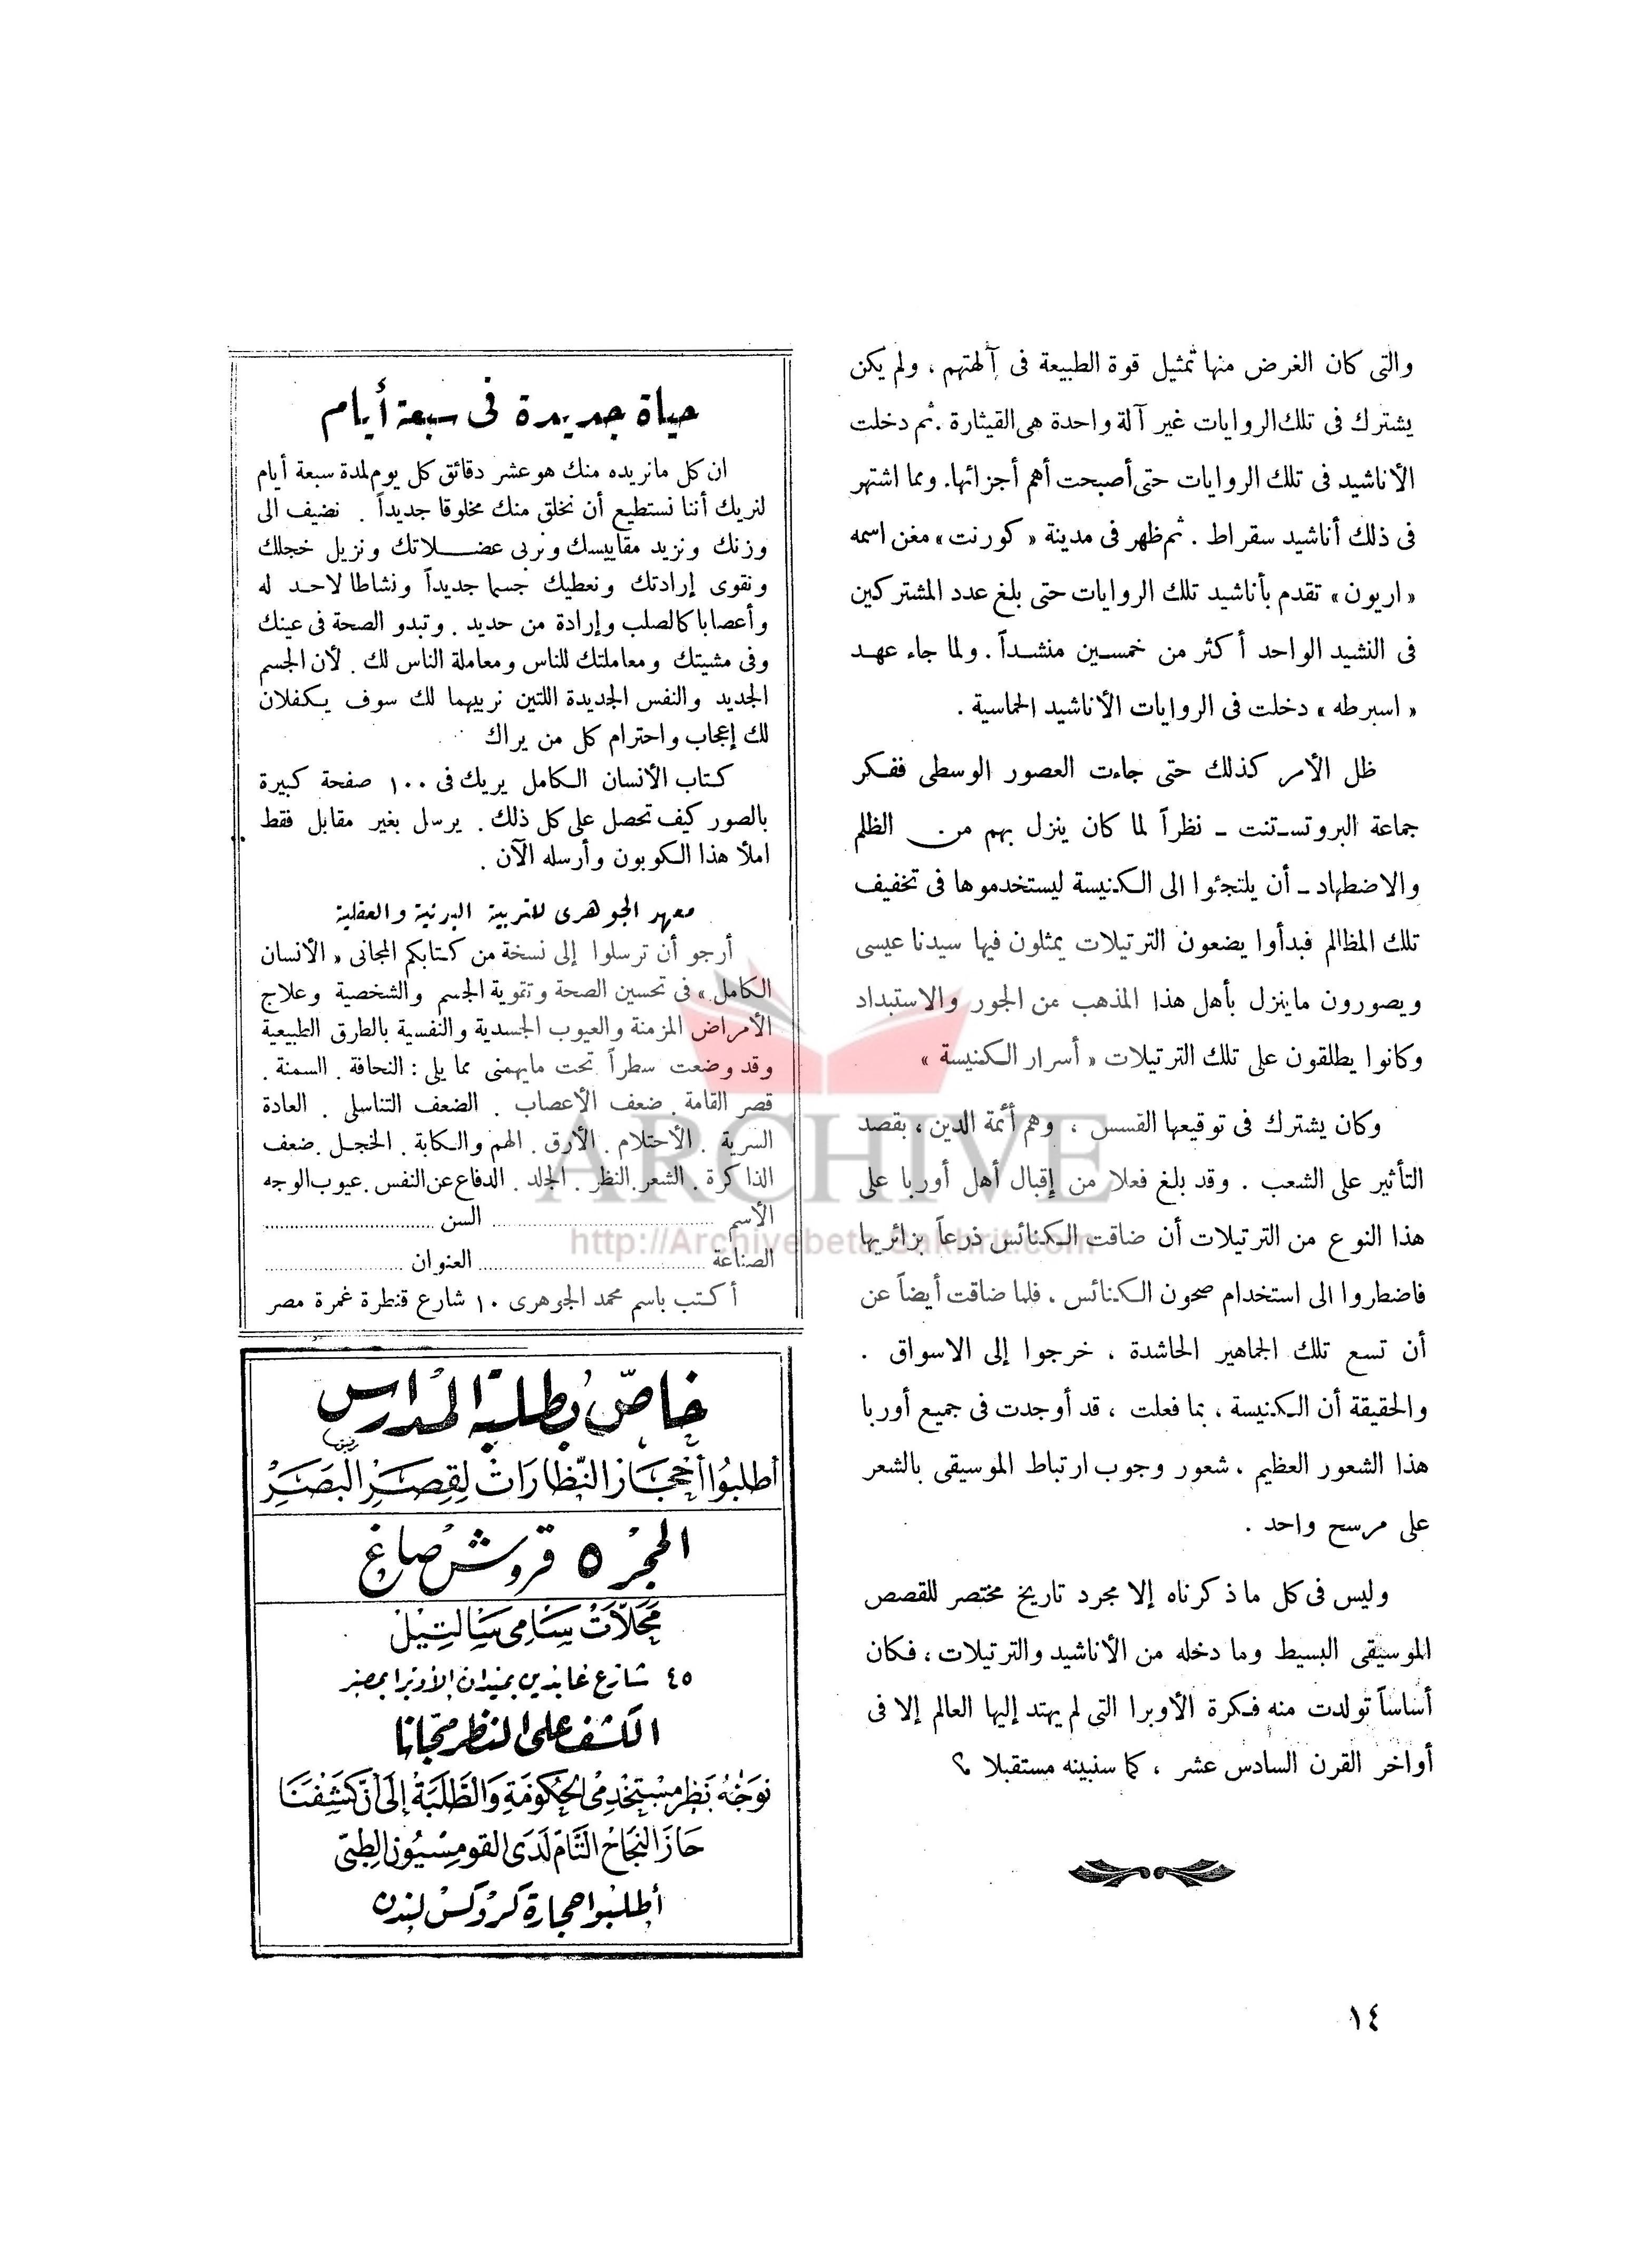 والتى كان الغرض منها تمثيل قوة الطبيعة فى آلهتهم ، ولم يكن
يشترك فى تلك الروايات غير آلة واحدة هى القيثارة . ثم دخلت
الأناشيد فى تلك الروايات حتى أصبحت أهم أجزائها . ومما اشتهر
فى ذلك أناشيد سقراط . ثم ظهر فى مدينة « كورنت » مغن اسمه
« اريون » تقدم بأناشيد تلك الروايات حتى بلغ عدد المشتركين
فى النشيد الواحد أكثر من خمسين منشداً . ولما جاء عهد
« اسبرطه » دخلت فى الروايات الأناشيد الحماسية .
ظل الأمر كذلك حتى جاءت العصور الوسطى ففكر
جماعة البروتستنت ـ نظراً لما كان ينزل بهم من الظلم
والاضطهاد ـ أن يلتجئوا الى الكنيسة ليستخدموها فى تخفيف
تلك المظالم فبدأوا يضعون الترتيلات يمثلون فيها سيدنا عيسى
ويصورون ماينزل بأهل هذا المذهب من الجور والاستبداد
وكانوا يطلقون على تلك الترتيلات « أسرار الكنيسة »
وكان يشترك فى توقيعها القسس ، وهم أئمة الدين ، بقصد
التأثير على الشعب . وقد بلغ فعلا من إقبال أهل أوربا على
هذا النوع من الترتيلات أن ضاقت الكنائس ذرعاً بزائريها
فاضطروا الى استخدام صحون الكنائس . فلما ضاقت أيضاً عن
أن تسع تلك الجماهير الحاشدة ، خرجوا إلى الاسواق .
والحقيقة أن الكنيسة ، بما فعلت ، قد أوجدت فى جميع أوربا
هذا الشعور العظيم ، شعور وجوب ارتباط الموسيقى بالشعر
على مرسح واحد .
وليس فى كل ماذكرناه إلا مجرد تاريخ مختصر للقصص
الموسيقى البسيط وما دخله من الأناشيد والترتيلات ، فكان
أساساً تولدت منه فكرة الأوبرا التى لم يهتد إليها العالم إلا فى
أواخر القرن السادس عشر ، كما سنبينه مستقبلا ؟
حياة جديدة فى سبعة أيام
ان كل مانريده منك هو عشر دقائق كل يوم لمدة سبعة أيام
لنريك أننا نستطيع أن نخلق منك مخلوقا جديداً . نضيف الى
وزنك ونزيد مقاييسك ونربى عضلاتك ونزيل خجلك
ونقوى إرادتك ونعطيك جسما جديداً ونشاطا لاحد له
وأعصابا كالصلب وإرادة من حديد . وتبدو الصحة فى عينك
وفى مشيتك ومعاملتك للناس ومعاملة الناس لك . لأن الجسم
الجديد والنفس الجديدة اللتين نربيهما لك سوف يكفلان
لك إعجاب واحترام كل من يراك
كتاب الأنسان الكامل يريك فى ١٠٠ صفحة كبيرة
بالصور كيف تحصل على كل ذلك . يرسل بغير مقابل فقط
املأ هذا الكوبون وأرسله الآن .
معهد الجوهرى للتربية البدنية والعقلية
أرجو أن ترسلوا إلى نسخة من كتابكم المجانى « الأنسان
الكامل » فى تحسين الصحة وتقوية الجسم والشخصية وعلاج
الأمراض المزمنة والعيوب الجسدية والنفسية بالطرق الطبيعية
وقد وضعت سطراً تحت مايهمنى مما يلى : النحافة . السمنة .
قصر القامة . ضعف الأعصاب . الضعف التناسلى . العادة
السرية . الأحتلام . الأرق . الهم والكابة . الخجل . ضعف
الذاكرة . الشعر . النظر . الجلد . الدفاع عن النفس . عيوب الوجه
الأسم ........................ السن ........................
الصناعة ........................ العنوان ........................
أكتب باسم محمد الجوهرى ١٠ شارع قنطرة غمرة مصر
خاصّ بطلبة المدارس
أطلبوا أحجاز النظارات لقصر البصر
الحجر ٥ قروش صاغ
محلات سامى سالتيل
٤٥ شارع عابدين بميدان الأوبرا بمصر
الكشف على النظر مجانا
نوجه نظر مستخدمى الحكومة والطلبة إلى أن كشفنا
حاز النجاح التام لدى القومسيون الطبى
أطلبوا حجارة كروكس لندن
١٤
ARCHIVE
http://Archivebeta.Sakhrit.com